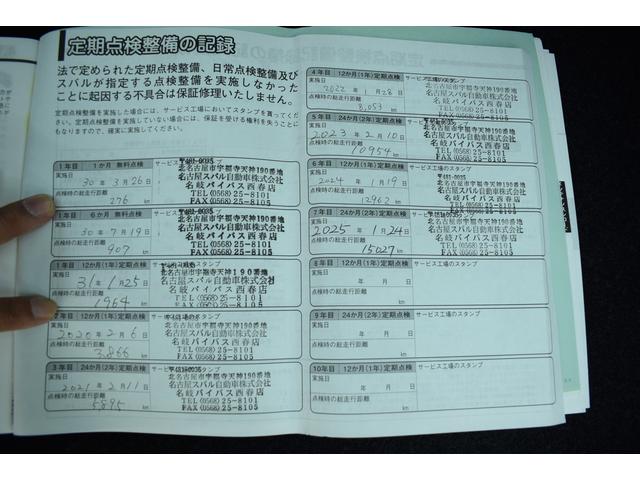 定期点検整備の記録
法で定められた定期点検整備、日常点検整備及び
スバルが指定する点検整備を実施しなかった
ことに起因する不具合は保証修理いたしません。
定期点検整備を実施した場合には、サービス工場においてスタンプを貰ってください。
定期点検整備を実施していない場合には、保証を受ける権利を失うことに
もなりますので、確実に実施してください。
1年目 1か月 無料点検 サービス工場のスタンプ
〒481-0035
実施日 30年 3月 26日
点検時の総走行距離
276 km
北名古屋市宇福寺天神190番地
名古屋スバル自動車株式会社
名岐バイパス西春店
TEL(0568)25-8101
FAX(0568)25-8105
1年目 6か月 無料点検
実施日 30年 7月 19日
点検時の総走行距離
907 km
北名古屋市宇福寺天神190番地
名古屋スバル自動車株式会社
名岐バイパス西春店
TEL(0568)25-8101
FAX(0568)25-8105
1年目 12か月(1年)定期点検
実施日 31年 1月 25日
点検時の総走行距離
1964 km
北名古屋市宇福寺天神190番地
名古屋スバル自動車株式会社
名岐バイパス西春店
TEL(0568)25-8101
FAX(0568)25-8105
2年目 12か月(1年)定期点検
実施日 2020年 2月 6日
点検時の総走行距離
3,866 km
北名古屋市宇福寺天神190番地
名古屋スバル自動車株式会社
名岐バイパス西春店
TEL(0568)25-8101
FAX(0568)25-8105
3年目 24か月(2年)定期点検
実施日 2021年 2月 11日
点検時の総走行距離
5895 km
北名古屋市宇福寺天神190番地
名古屋スバル自動車株式会社
名岐バイパス西春店
TEL(0568)25-8101
FAX(0568)25-8105
4年目 12か月(1年)定期点検 サービス工場のスタンプ
実施日 2022年 1月 28日
点検時の総走行距離
8,053 km
北名古屋市宇福寺天神190番地
名古屋スバル自動車株式会社
名岐バイパス西春店
TEL(0568)25-8101
FAX(0568)25-8105
5年目 24か月(2年)定期点検
実施日 2023年 2月 10日
点検時の総走行距離
10954 km
北名古屋市宇福寺天神190番地
名古屋スバル自動車株式会社
名岐バイパス西春店
TEL(0568)25-8101
FAX(0568)25-8105
6年目 12か月(1年)定期点検 サービス工場のスタンプ
〒481-0035
実施日 2024年 1月 19日
点検時の総走行距離
12962 km
北名古屋市宇福寺天神190番地
名古屋スバル自動車株式会社
名岐バイパス西春店
TEL(0568)25-8101
FAX(0568)25-8105
7年目 24か月(2年)定期点検
実施日 2025年 1月 24日
点検時の総走行距離
15027 km
北名古屋市宇福寺天神190番地
名古屋スバル自動車株式会社
名岐バイパス西春店
TEL(0568)25-8101
FAX(0568)25-8105
8年目 12か月(1年)定期点検 サービス工場のスタンプ
実施日 年 月 日
点検時の総走行距離
km
9年目 24か月(2年)定期点検 サービス工場のスタンプ
実施日 年 月 日
点検時の総走行距離
km
10年目 12か月(1年)定期点検 サービス工場のスタンプ
実施日 年 月 日
点検時の総走行距離
km